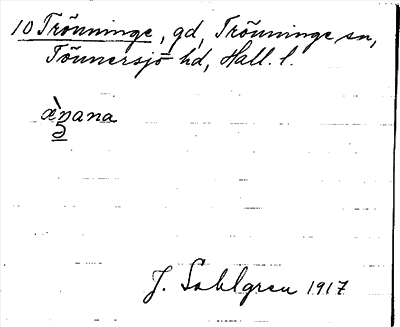 10 Trönninge, gd, Trönninge sn,
Tönnersjö hd, Hall. l.
J. Sahlgren 1917